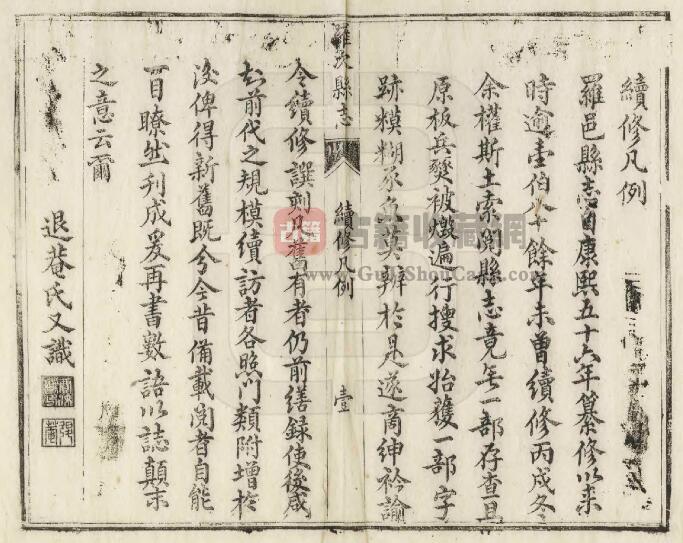 續修凡例
羅邑縣志自康熙五十六年纂修以來
時逾壹伯八十餘年未曾續修丙戍冬
余權斯土索閱縣志竟無一部存查且
原板兵燹被燬遍行搜求始獲一部字
跡糢糊豕魚莫辨於是遂商紳衿諭
羅次縣志
續修凡例
壹
令續修譔刻凡舊有者仍前繕錄使後咸
知前代之規模續訪者各照門類附增於
後俾得新舊既分今昔備載閱者自能
一目瞭然刊成爰再書數語以誌顛末
之意云爾
退菴氏又識
古籍收藏網
www.GuJiShouCang.com